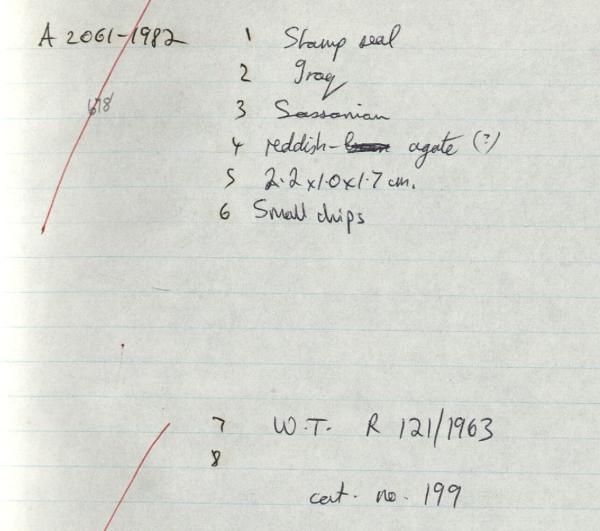 A 2061-1982 1 Stamp seal
2 Iraq
678
3 Sassanian
4 reddish- agate (?)
5 2.2 x 1.0 x 1.7 cm.
6 Small chips
7 W.T. R 121/1963
8
cat. no. 199